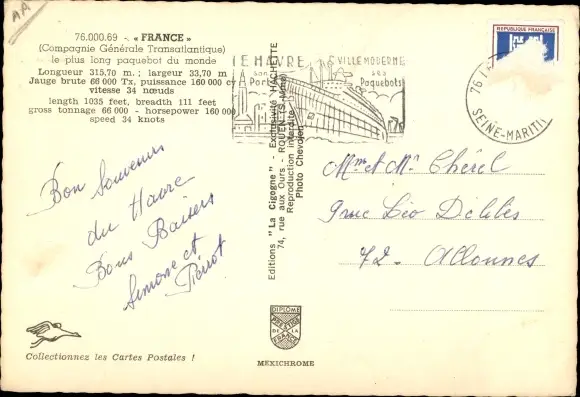 AA
76.000.69 - « FRANCE »
(Compagnie Générale Transatlantique)
le plus long paquebot du monde
Longueur 315,70 m. ; largeur 33,70 m
Jauge brute 66 000 Tx, puissance 160 000 cv
vitesse 34 nœuds
length 1035 feet, breadth 111 feet
gross tonnage 66 000 - horsepower 160 000
speed 34 knots
Bon Souvenir
du Havre
Bons Baisers
Simone et
Pierrot
Collectionnez les Cartes Postales !
LE HAVRE
son
Port
VILLE MODERNE
ses
Paquebots
REPUBLIQUE FRANÇAISE
76
SEINE-MARITI
Editions "La Cigogne" - Exclusivité HACHETTE
74, rue aux Ours - ROUEN (S.-Mme)
Reproduction interdite
Photo Chevojon
DIPLOME
PRESTIGE
DE LA
FRANCE
MEXICHROME
Mme et Mr Chérel
9 rue Léo Délibes
72 - Allonnes